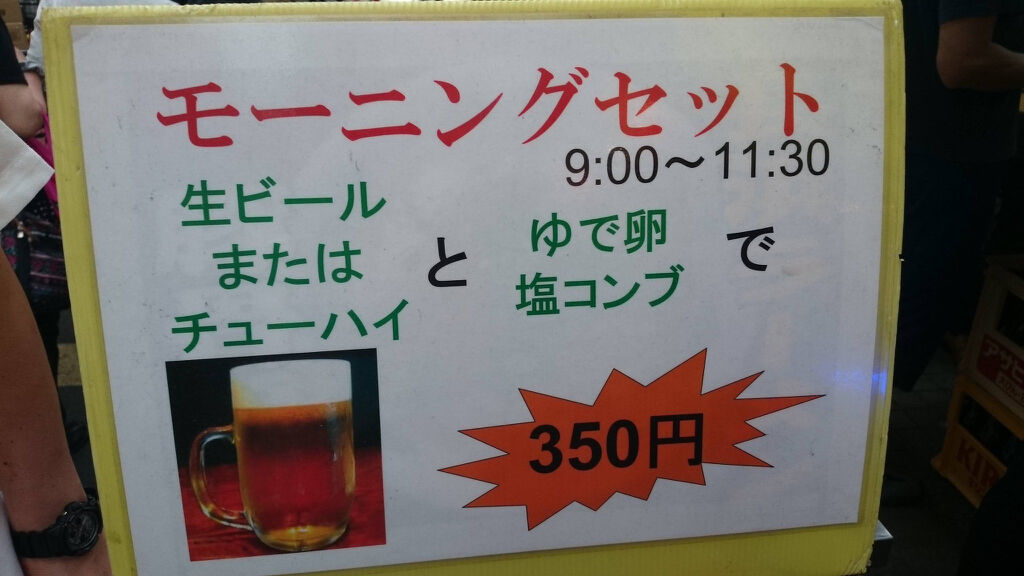 モーニングセット
9:00～11:30
生ビール
または
チューハイ
と
ゆで卵
塩コンブ
で
350円
アサヒ
KIR